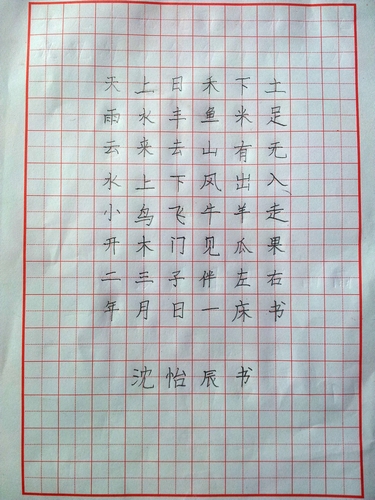 天上日禾下土
雨水丰鱼米足
云来去山有无
水上下风出入
小鸟飞牛羊走
开木门见瓜果
二三子伴左右
年月日一床书
沈怡辰书